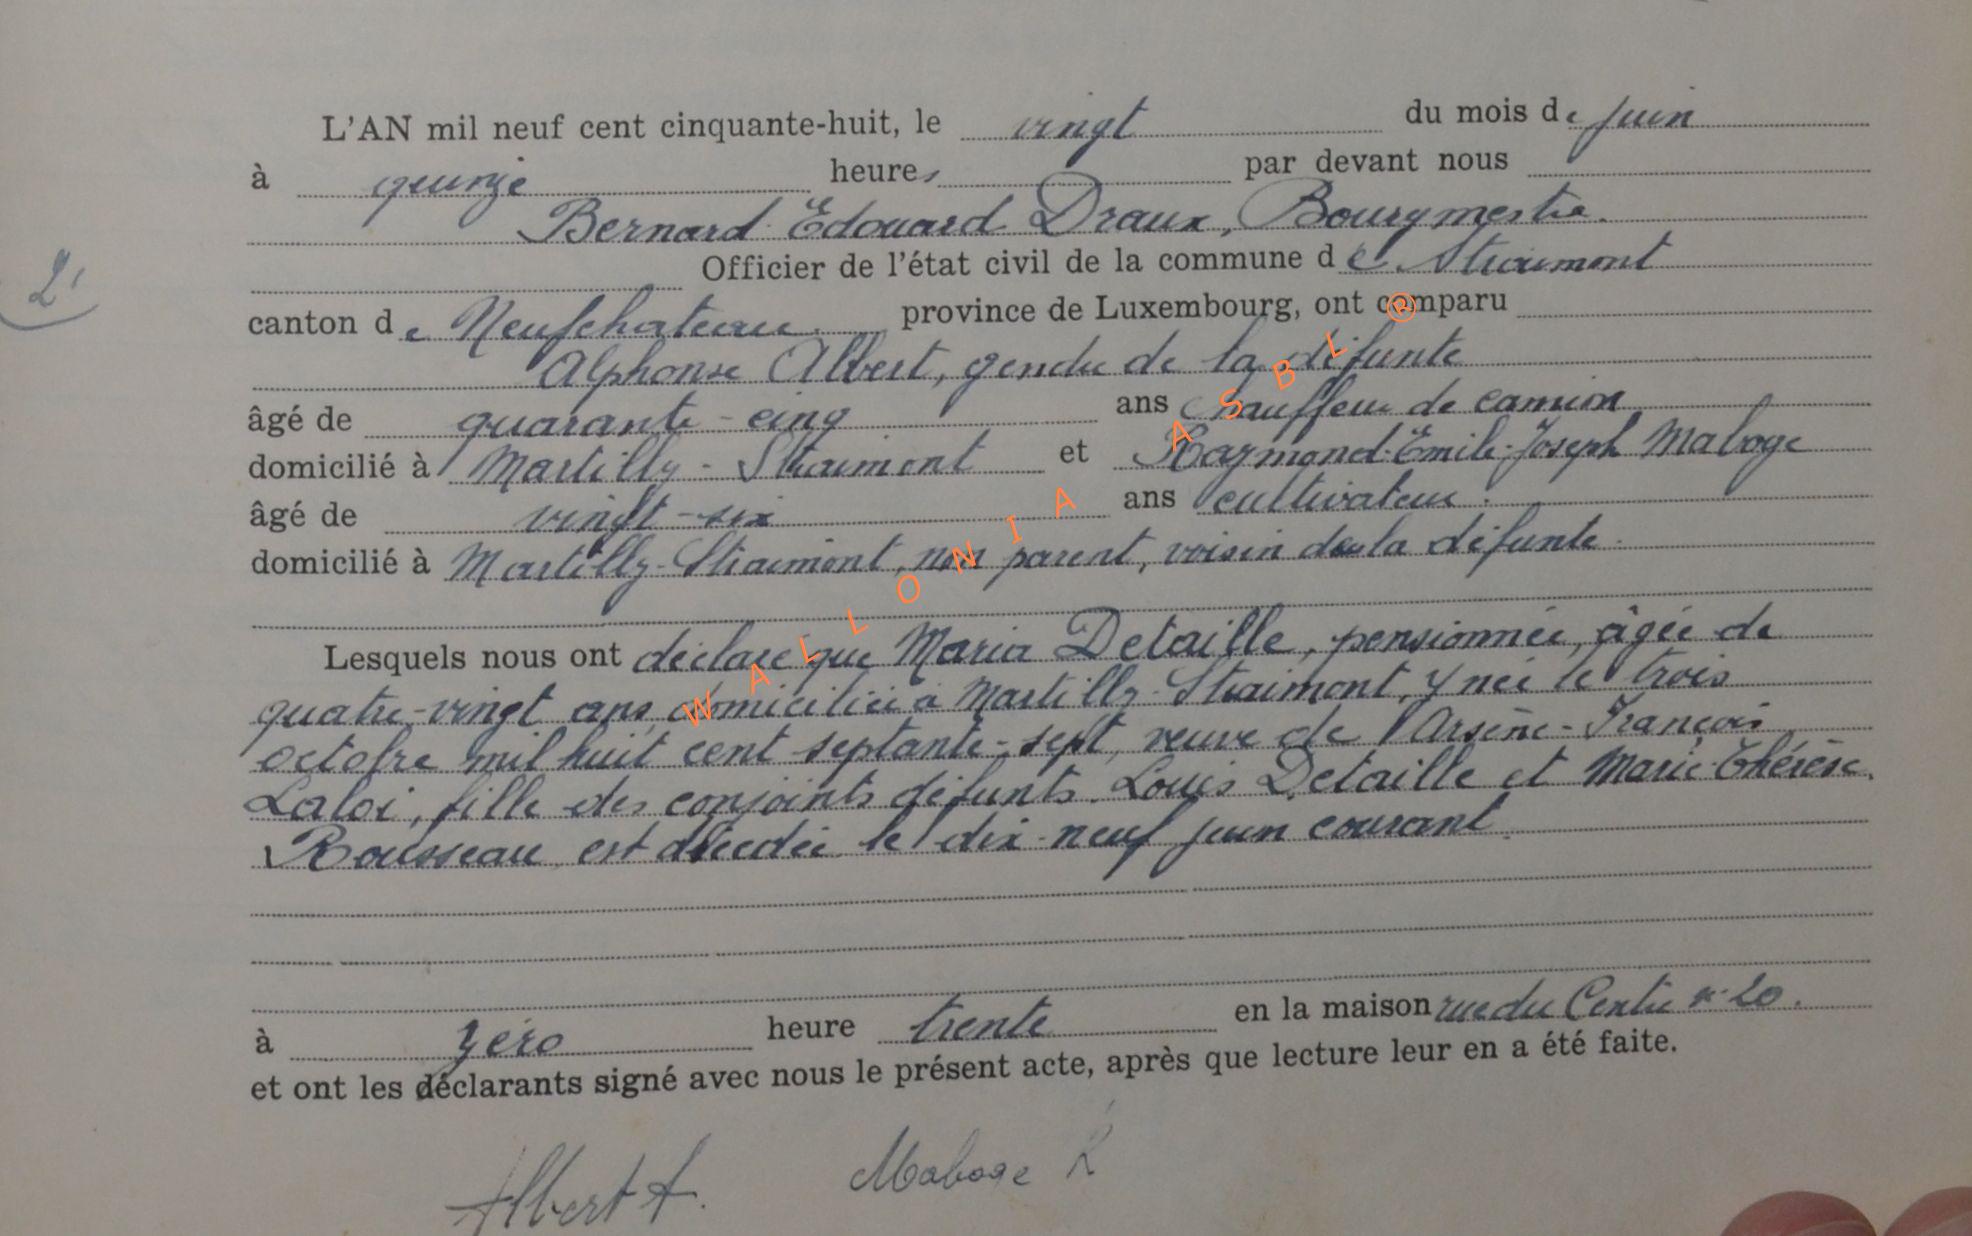 L'AN mil neuf cent cinquante-huit, le vingt du mois de juin
à quinze heures par devant nous
Bernard Edouard Draux, Bourgmestre.
Officier de l'état civil de la commune de Straimont
2'
canton de Neufchateau. province de Luxembourg, ont comparu
Alphonse Albert, gendre de la défunte
âgé de quarante-cinq ans chauffeur de camion
domicilié à Martilly-Straimont et Raymond-Emile-Joseph Maboge
âgé de vingt-six ans cultivateur.
domicilié à Martilly-Straimont, non parent, voisin de la défunte.
Lesquels nous ont déclaré que Maria Detaille, pensionnée, âgée de
quatre-vingt ans, domiciliée à Martilly-Straimont, y née le trois
octobre mil huit cent septante-sept, veuve de Arsène-François
Laloi, fille des conjoints défunts. Louis Detaille et Marie-Thérèse
Rousseau est décédée le dix-neuf juin courant.
à zéro heure trente en la maison rue du Centre n° 20.
et ont les déclarants signé avec nous le présent acte, après que lecture leur en a été faite.
Albert A. Maboge R
WALLONIA ASBL ®